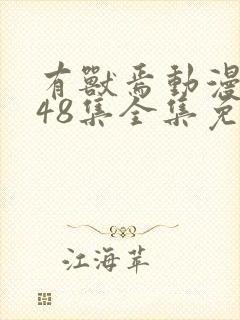 有獸焉動漫
48集全集免
江海苹